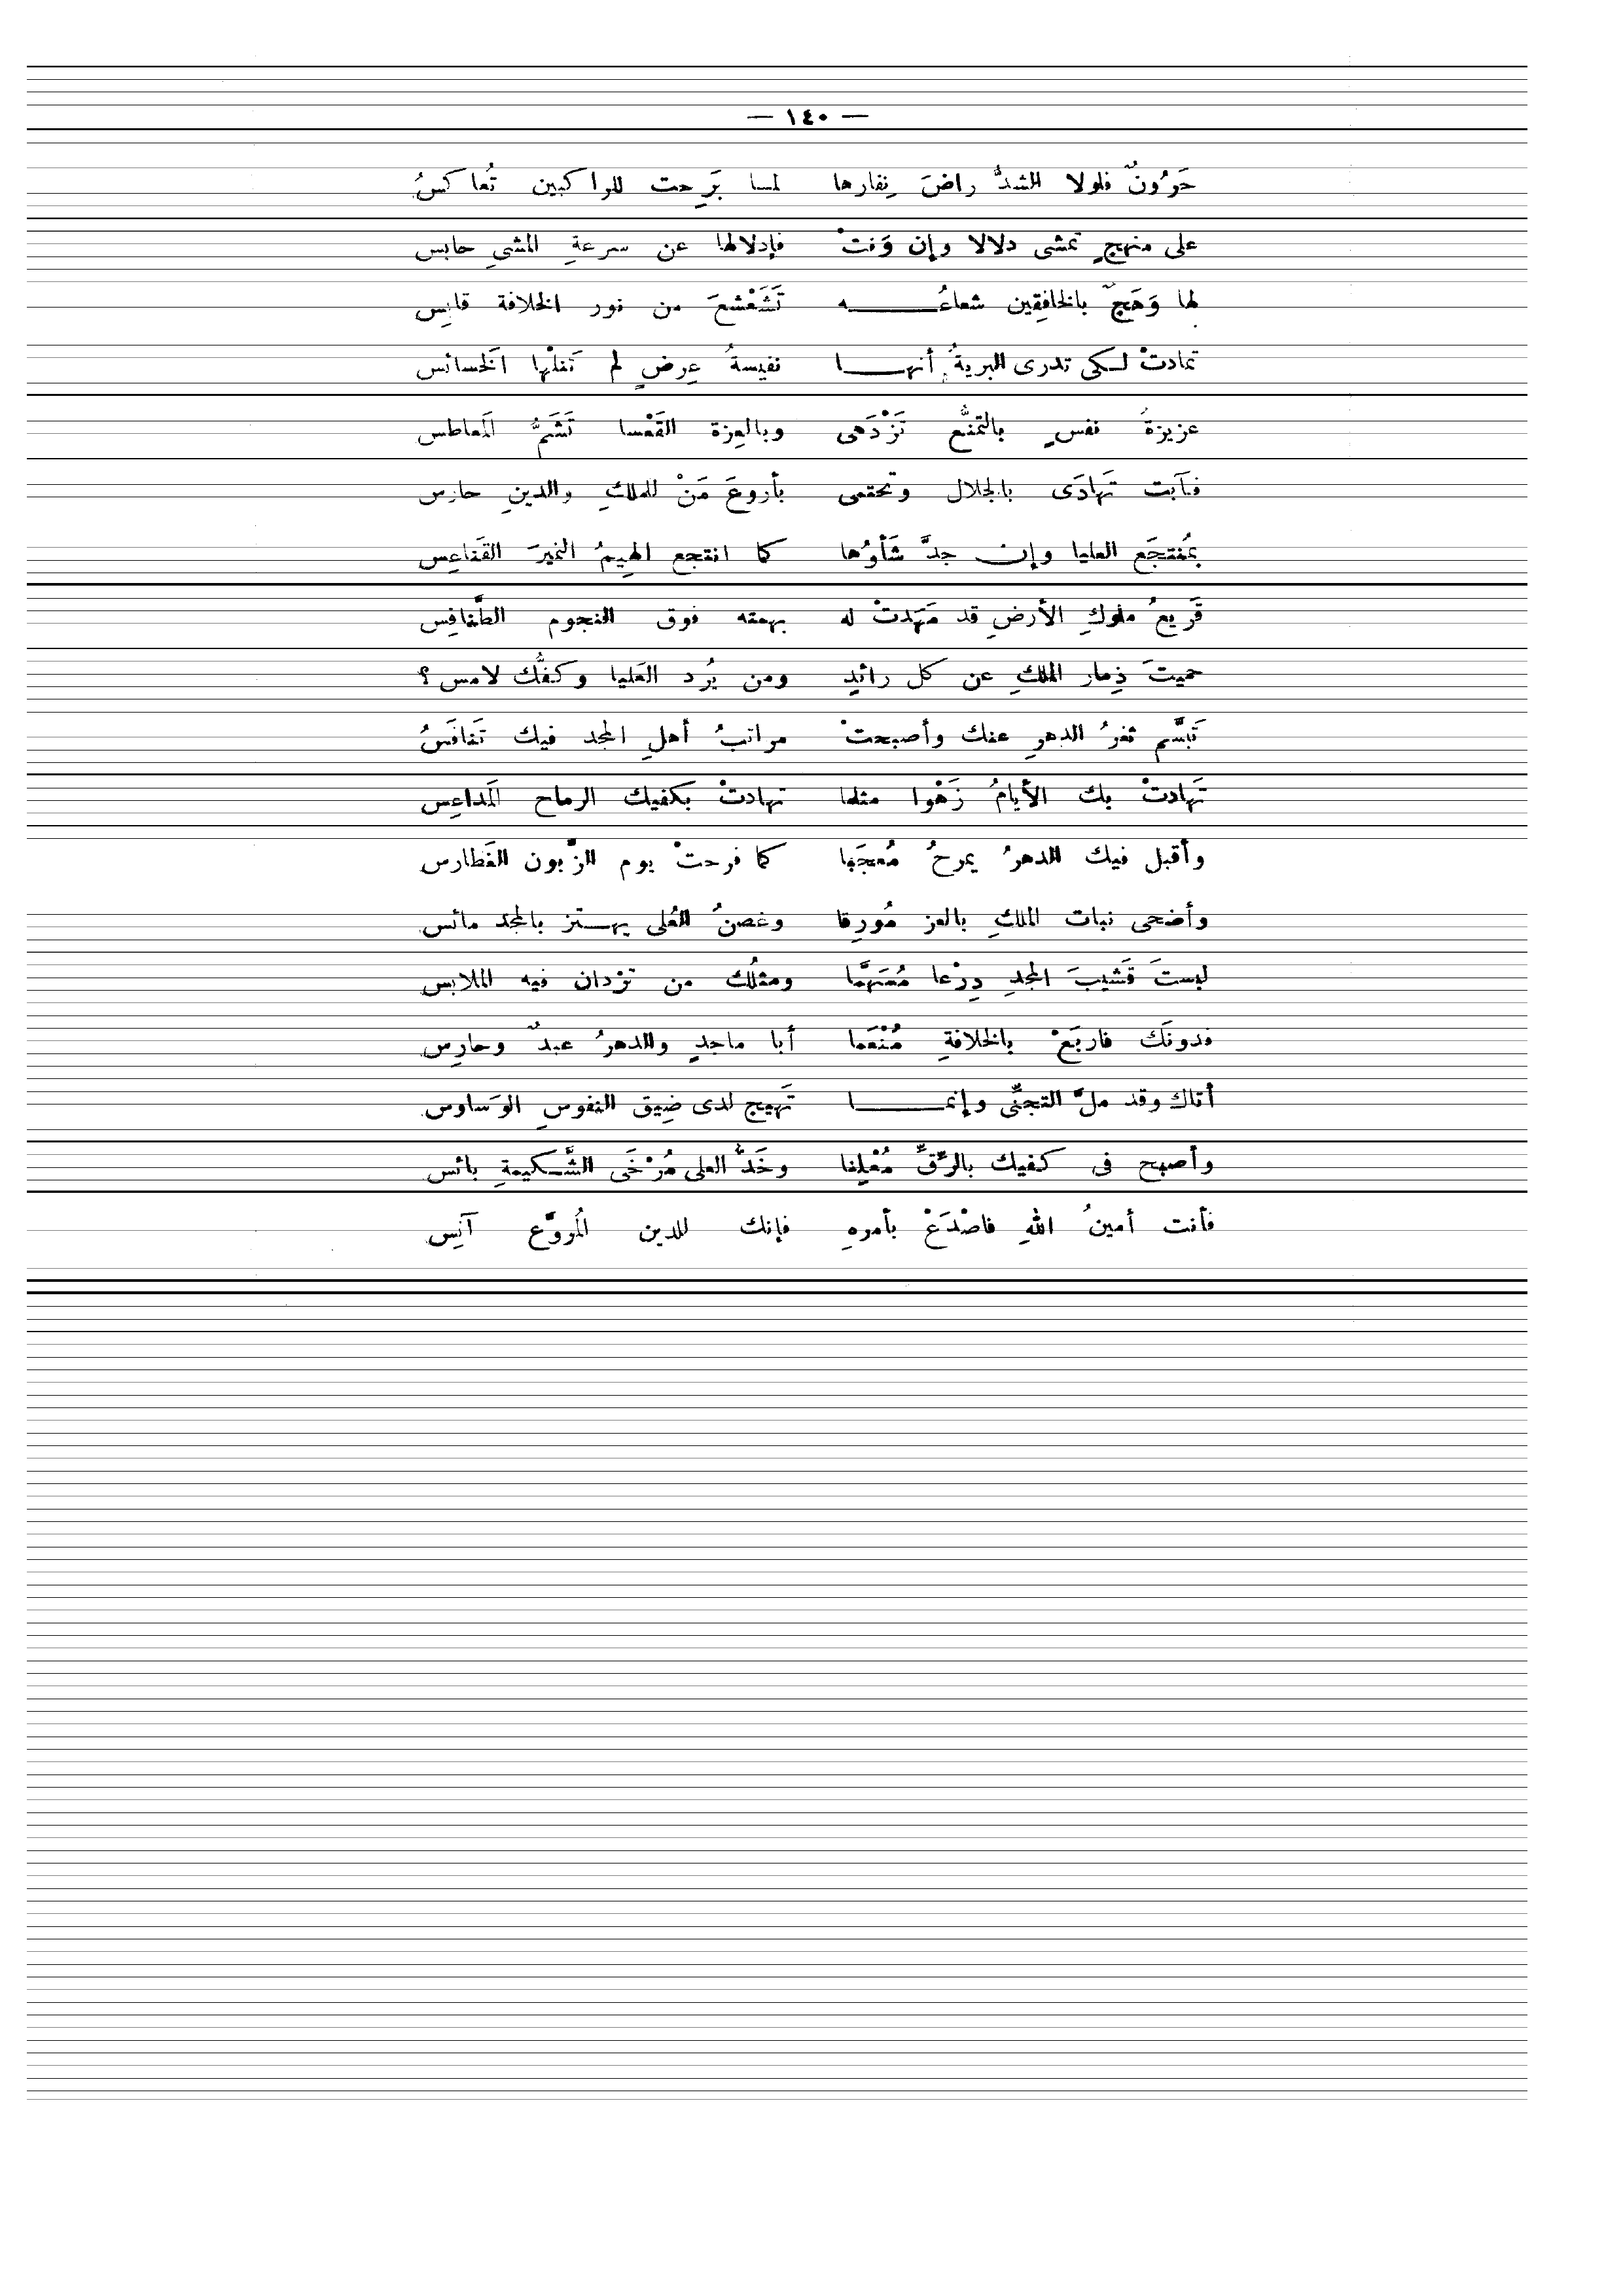 — ١٤٠ —
حَرُونٌ فلولا الشدُّ راضَ نِفارها لما بَرِحت للراكبين تُعاكسُ
على منهجٍ تمشى دلالا وإن وَنتْ فإدلالها عن سرعةِ المشىِ حابس
لها وَهَجٌ بالخافِقين شعاعُه تَشَعْشعَ من نور الخلافة قابِس
تمادتْ لكى تدرى البريةُ أنها نفيسةُ عِرضٍ لم تَنلْها الخَسائس
عزيزةُ نفسٍ بالتمنُّع تَزْدَهى وبالعِزة القَعْسا تَشَمُّ المَعاطس
فآبت تَهادَى بالجلال وتحتمى بأروعَ مَنْ للملكِ والدينِ حارس
بمُنتجَع العليا وإن جدَّ شَأوُها كما انتجع الهِيمُ النميرَ القَناعِس
قَريعُ ملوكِ الأرضِ قد مَهَدتْ له بهمته فوق النجوم الطَّنافِس
حميتَ ذِمار الملكِ عن كل رائدٍ ومن يُرد العَليا وكفُّك لامس؟
تَبَسَّم ثغرُ الدهرِ عنك وأصبحتْ مراتبُ أهلِ المجد فيك تَنافَسُ
تَهادتْ بك الأيامُ زَهْوا مثلما تهادتْ بكفيك الرماح المَداعِس
وأقبل فيك الدهرُ يمرحُ مُعجَبا كما فرحتْ يوم الزَّبون الغَطارس
وأضحى نبات الملكِ بالعز مُورِقا وغصنُ العُلى يهتز بالمجد مائس
لبستَ قَشيبَ المجدِ دِرْعا مُسَهَّما ومثلُك من تزْدان فيه الملابس
فدونَك فاربَعْ بالخلافةِ مُنْعَما أبا ماجدٍ والدهرُ عبدٌ وحارِس
أتاك وقد ملَّ التجنِّى وإنما تَهيج لدى ضِيق النفوسِ الوَساوس
وأصبح فى كفيك بالرِّقِّ مُعْلِنا وخَدُّ العلى مُرْخَى الشَّكيمةِ بائس
فأنت أمينُ اللهِ فاصْدَعْ بأمرهِ فإنك للدين المُروَّع آنِس